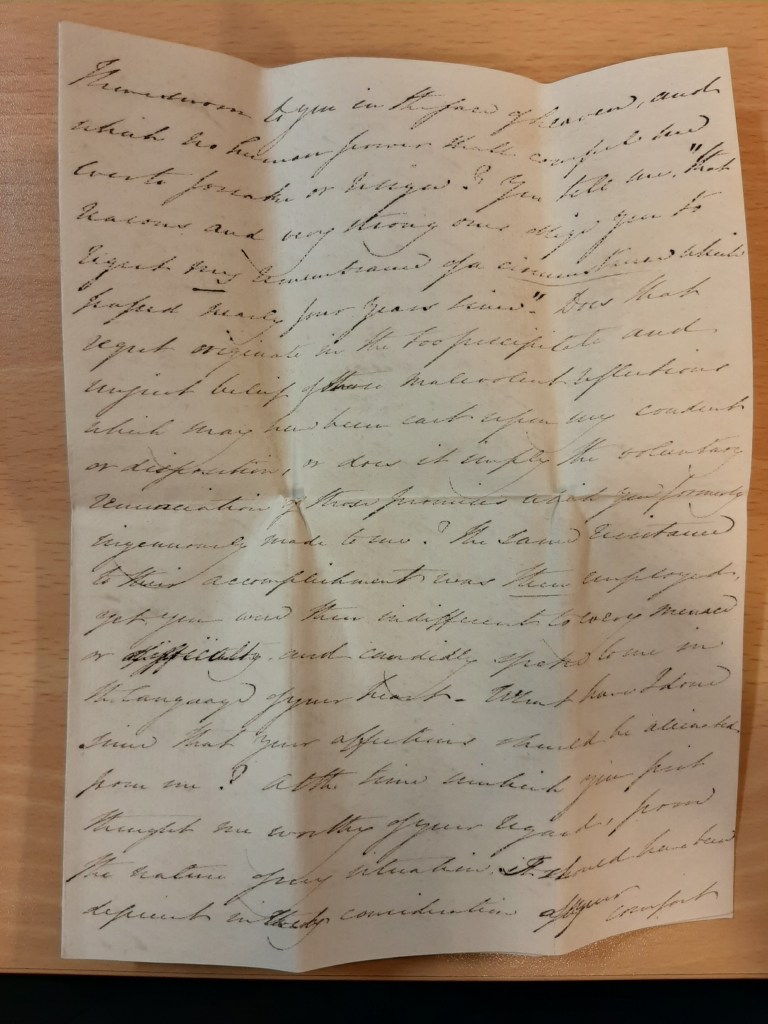 I have sworn to you in the face of heaven, and
which no human power shall compel me
ever to forsake or resign? You tell me "that
reasons and very strong ones oblige you to
regret my remembrance of a circumstance which
passed nearly four years since". Does that
regret originate in the too precipitate and
unjust belief of those malevolent reflections
which may have been cast upon my conduct
or disposition, or does it imply the voluntary
renunciation of those promises which you formerly
ingenuously made to me? The same resistance
to their accomplishment was then employed,
yet you were then indifferent to every menace
or difficulty and candidly spoke to me in
the language of your heart - What have I done
since that your affections should be alienated
from me? At the time in which you first
thought me worthy of your regards, from
the nature of my situation, I should have been
deficient in consideration of your comfort